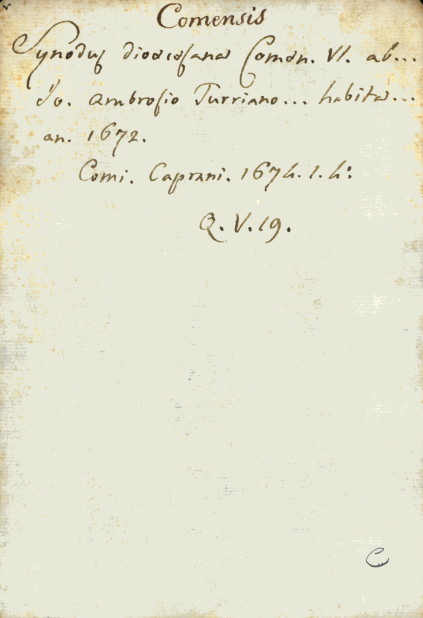 Comensis
Synodus dioecesana Comen. VI. ab...
Jo. Ambrosio Turriano... habita...
an. 1672.
Comi. Caprani. 1674. 1. 4º
Q. V. 19.
C